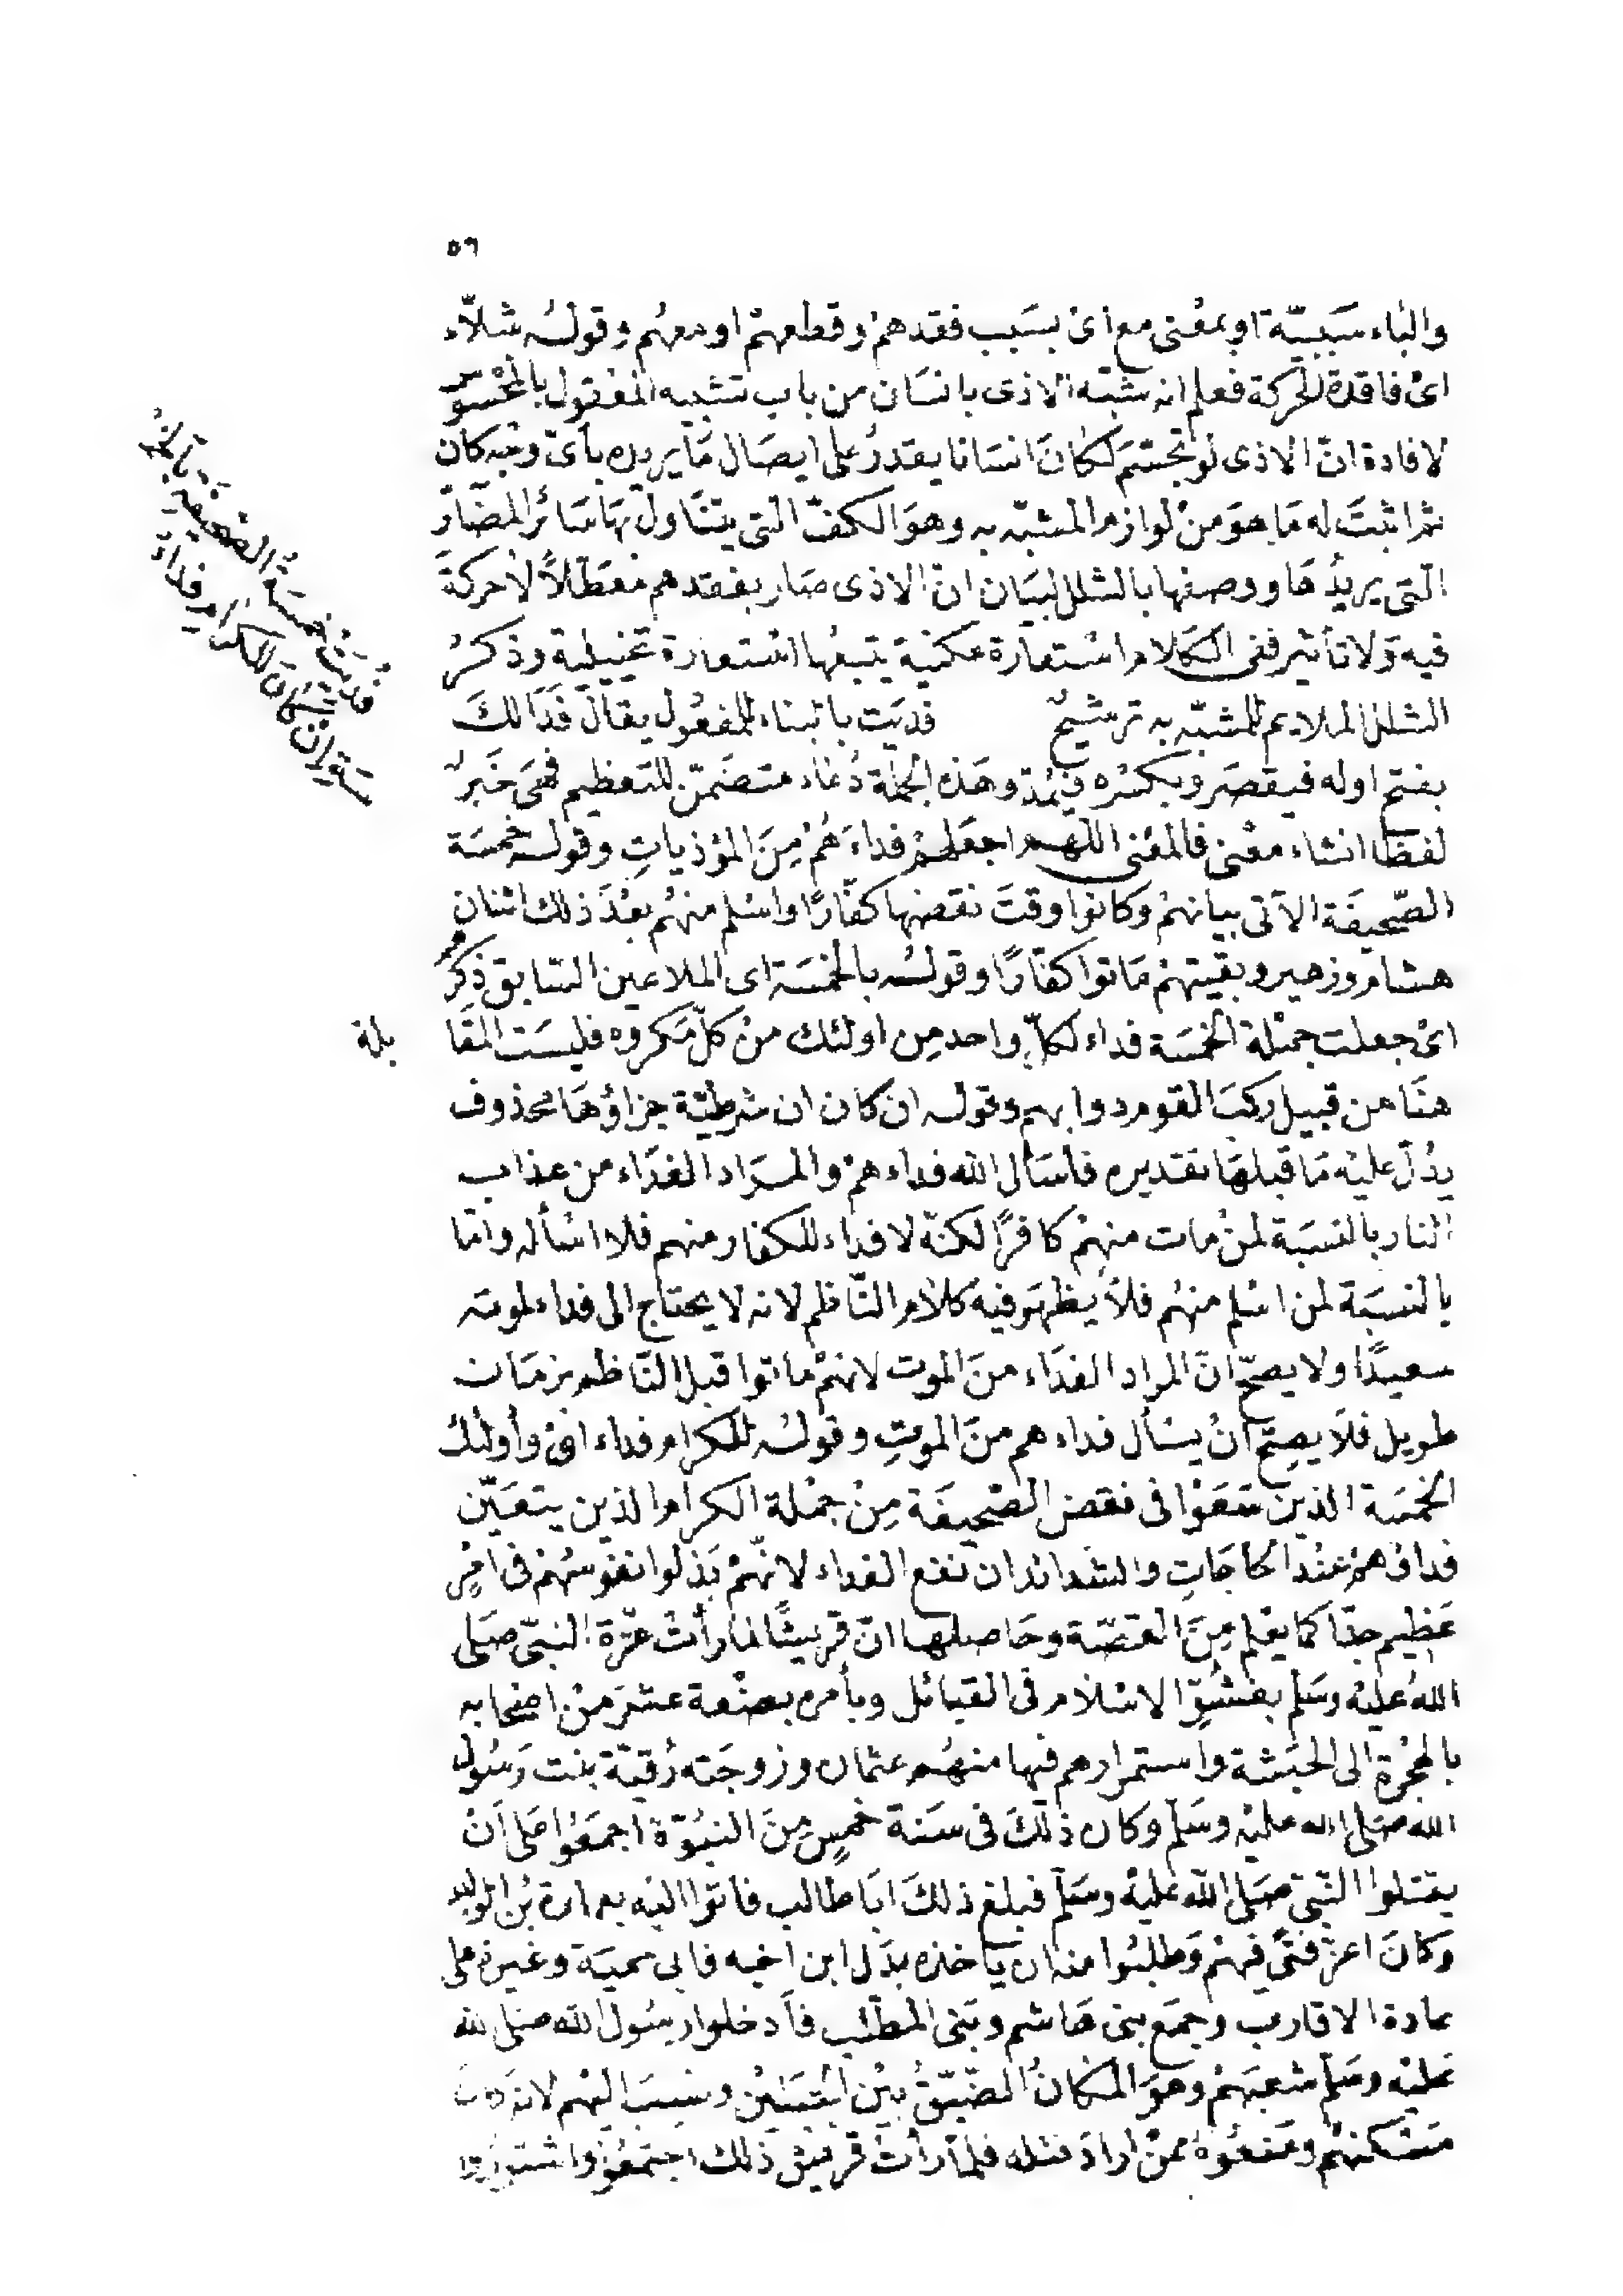 ٥٦
والباء سَبَبيّة او بمعْنى مع اىْ بسَبب فقدهمْ وقطعهمْ او معهُم وقولُه شلاّء
اىْ فاقدة الحركة فعلم انه شبّه الاذى بانسَان من باب تشبيه المعْقول بالمحْسوس
لافادة انّ الاذى لو تجسّمَ لكانَ انسَانا يقدرُ على ايصَال مَا يريده بأىّ وجْه كان
ثم اثبتَ له مَا هوَ منْ لوازم المشبّه به وهوَ الكفّ التى يتنَاول بهَا سَائر المضَارّ
التى يريدُهَا ووصفها بالشلل لبيَان انّ الاذى صَار بفقدهم معَطّلاً لا حركةَ
فيه وَلا تأثير ففى الكَلام اسْتعارة مكنية يتبعُها اسْتعارة تخييلية وذكرُ
الشلل الملايم للمشبّه به ترشيحٌ فديَت بالبناء للمفعُول يقال فدَا لكَ
بفتح اوله فيقصَر وبكسْره فيُمدّ وهَذه الجملة دُعَاء متضَمّن للتعظيم فهىَ خَبرٌ
لفظا انشاء معْنى فالمعْنى اللهم اجعَلهمْ فداءَ هُمْ مِنَ المؤذياتِ وقوله خمسَة
الصّحيفَة الآتى بيانهمْ وَكانوا وقتَ نقضها كفّارًا واسْلم منهُم بعْدَ ذلك اثنان
هشام وزهير وبقيتهمْ مَاتوا كفارًا وقولُه بالخمسَة اى الملاعين السّابق ذِكرُهم
اىْ جعلت جمْلة الخمسَة فداء لكلّ واحد مِن اولئك منْ كلّ مَكروه فليسَت المقَا
بلة
هنَا من قبيل ركبَ القوم دوابهم وقوله ان كان ان شرطيّة جزاؤهَا محذوف
يدُلّ عليْه مَا قبلهَا تقديره فأسَأل الله فداءهمْ والمرَاد الفدَاء من عذاب
النار بالنسَبَة لمنْ مات منهمْ كافرًا لكنّه لا فداء للكفار منهم فلا اسْأله وامّا
بالنسبَة لمن اسْلم منهُم فلاَ يظهَر فيه كلاَم النّاظم لانه لا يحتاج الى فداء لموته
سعيدًا ولا يصحّ انّ المراد الفدَاء منَ الموت لانهمْ ماتوا قبل النّاظم بزمَان
طويل فلاَ يصِحّ انْ يسْأل فداءهم منَ الموتِ وقولُه للكرام فداء اىْ وأولئك
الخمسَة الذينَ سَعَوْا فى نقض الصّحيفَة مِنْ جمْلة الكرام الذين يتعَيّن
فداؤهمْ عنْد الحَاجَاتِ والشدائد ان نفع الفداء لانّهمْ بَذلوا نفوسَهمْ فى امْرٍ
عَظِيم جدّا كما يعْلم مِنَ القصّة وحَاصلها انّ قرَيشًا لما رأتْ عزّة النبىّ صَلى
اللهُ عليْه وسَلم بفشُوّ الاسْلام فى القبائل وبأمره بضْعة عشَرَ منْ اصْحابه
بالهجْرة الى الحبَشة واستمرارهم فيها منهُم عثمان وزوجَته رُقيّة بنت رَسُول
الله صَلى الله عليْه وسَلم وكان ذلكَ فى سَنة خمسٍ مِنَ النبُوّة اجمَعُوا عَلى اَنْ
يقتلوا النّبىّ صَلى اللّه عليْه وسَلّم فبلغ ذلكَ ابَا طالب فاتوا اليْه بعمارة بْن الوليد
وَكانَ اعزّ فتًى فيهمْ وَطلبُوا منه ان يأخذه بدَل ابن اخيه فابى حميّة وغيرة على
عادة الاقارب وجمَع بنى هَاشم وبَنى المطّلب فأدخلوا رسُول الله صلى الله
عَليْه وسَلّم شعبَهمْ وهوَ المكانُ الضّيّقُ بيْن الجبَليْن ونسبَ اليْهم لانه
مَسْكنهُم ومَنعُوهُ ممّنْ ارادَ قتله فلمّا رأتْ قرَيش ذلك اجتمَعُوا
فُدِيَتْ خمسَةُ الصّحيفَةِ بالخمْـ
سَةِ انْ كانَ للكرام فداءُ